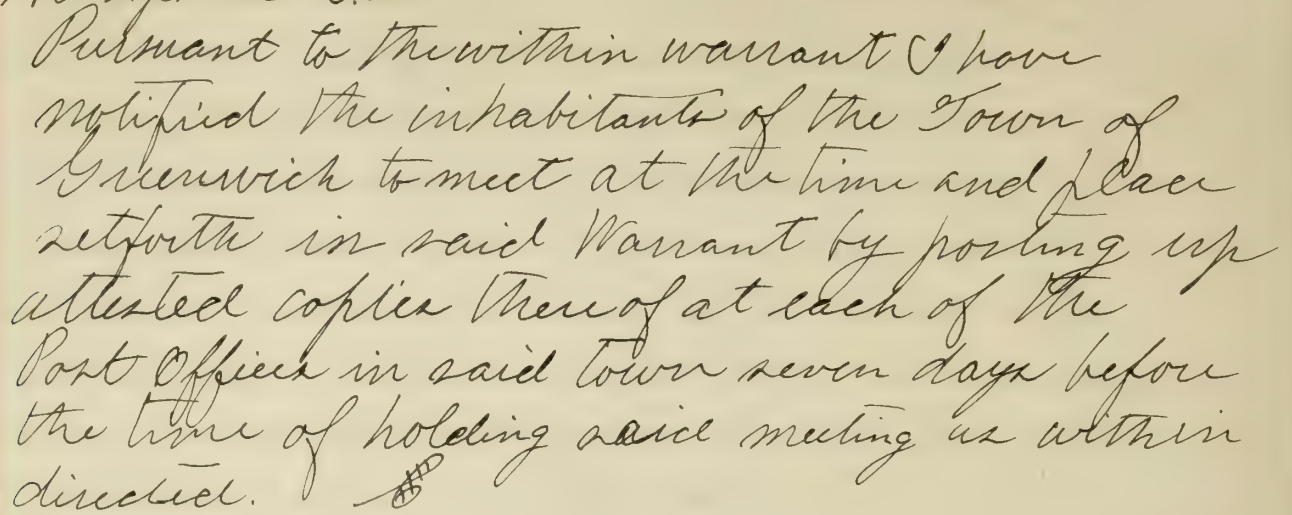 Pursuant to the within warrant I have
notified the inhabitants of the Town of
Greenwich to meet at the time and place
setforth in said Warrant by posting up
attested copies thereof at each of the
Post Offices in said town seven days before
the time of holding said meeting as within
directed.